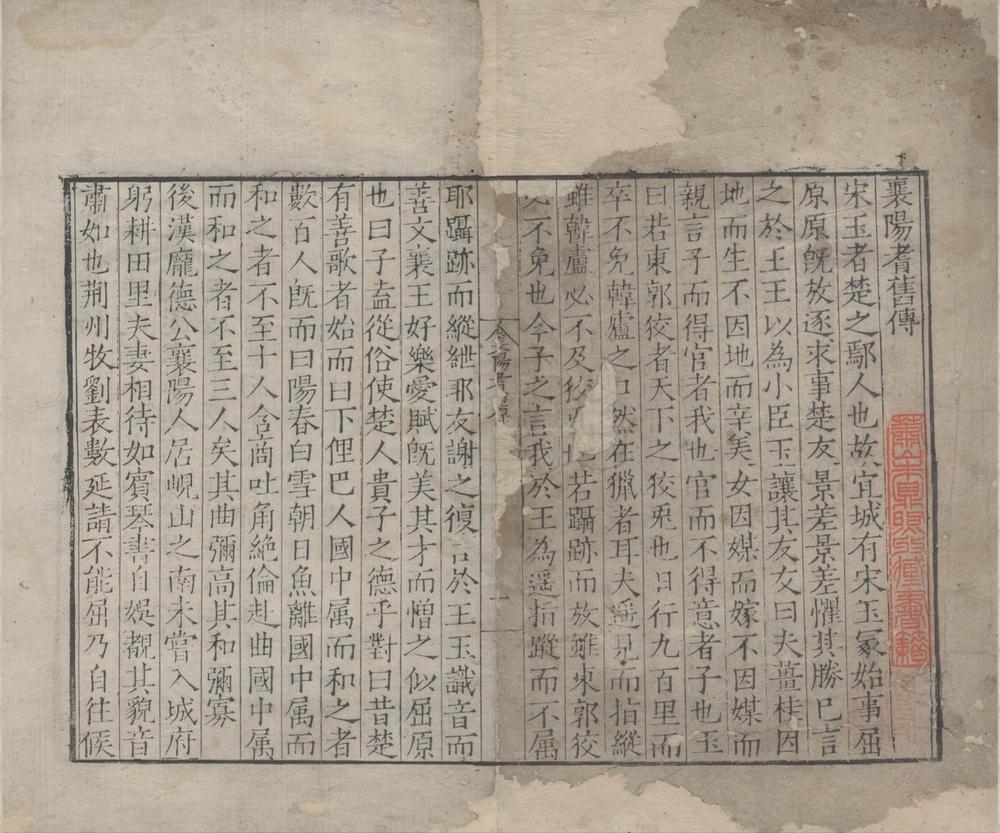 襄陽耆舊傳
宋玉者楚之鄢人也故宜城有宋玉冢始事屈
原原旣放逐求事楚友景差景差懼其勝已言
之於王王以為小臣玉讓其友友曰夫薑桂因
地而生不因地而辛美女因媒而嫁不因媒而
親言子而得官者我也官而不得意者子也玉
曰若東郭狡者天下之狡兎也日行九百里而
卒不免韓盧之口然在獵者耳夫遥見而指縱
雖韓盧必不及狡也若躡跡而放雖東郭狡
必不免也今子之言我於王為遥指蹤而不属
耶躡跡而縱紲耶友謝之復言於王玉識音而
善文襄王好樂愛賦旣美其才而憎之似屈原
也曰子盍從俗使楚人貴子之德乎對曰昔楚
有善歌者始而曰下俚巴人國中属而和之者
數百人旣而曰陽春白雪朝日魚離國中属而
和之者不至十人含商吐角絶倫赴曲國中属
而和之者不至三人矣其曲彌高其和彌寡
後漢龐德公襄陽人居峴山之南未嘗入城府
躬耕田里夫妻相待如賓琴書自娱覩其貌音
肅如也荆州牧劉表數延請不能屈乃自往候